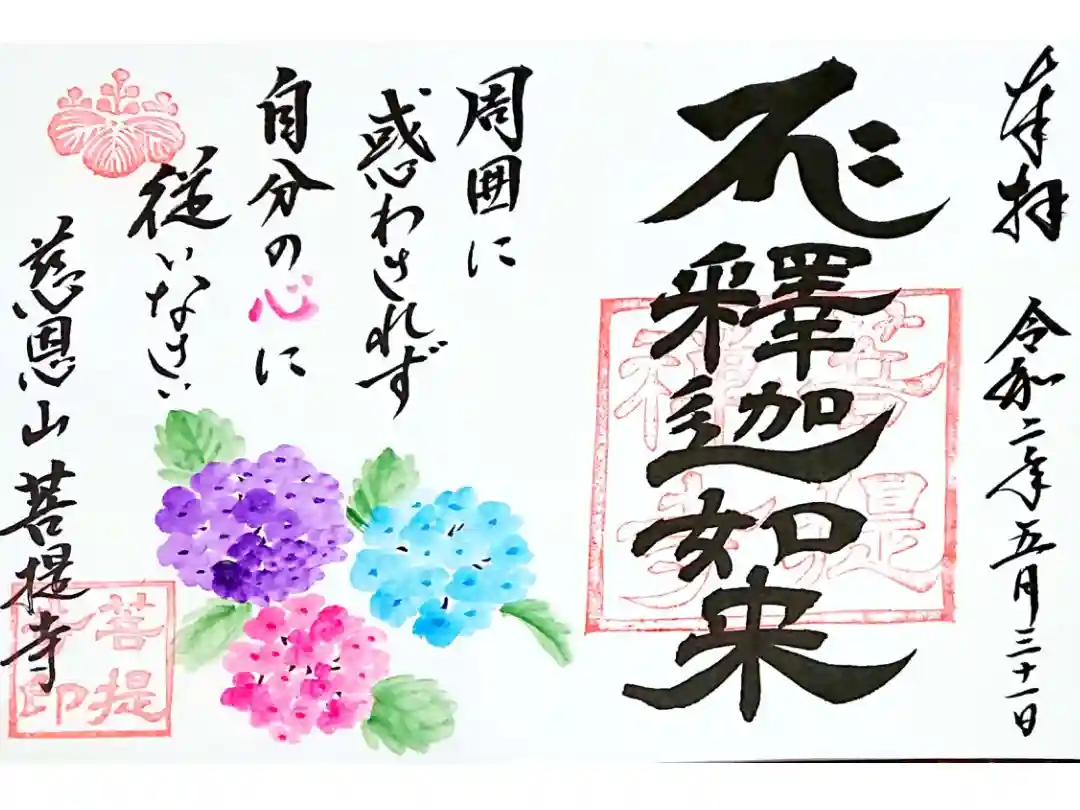 奉拝 令和二年五月三十一日
釋迦如来
周囲に
惑わされず
自分の心に
従いなさい
慈恩山 菩提寺
菩提